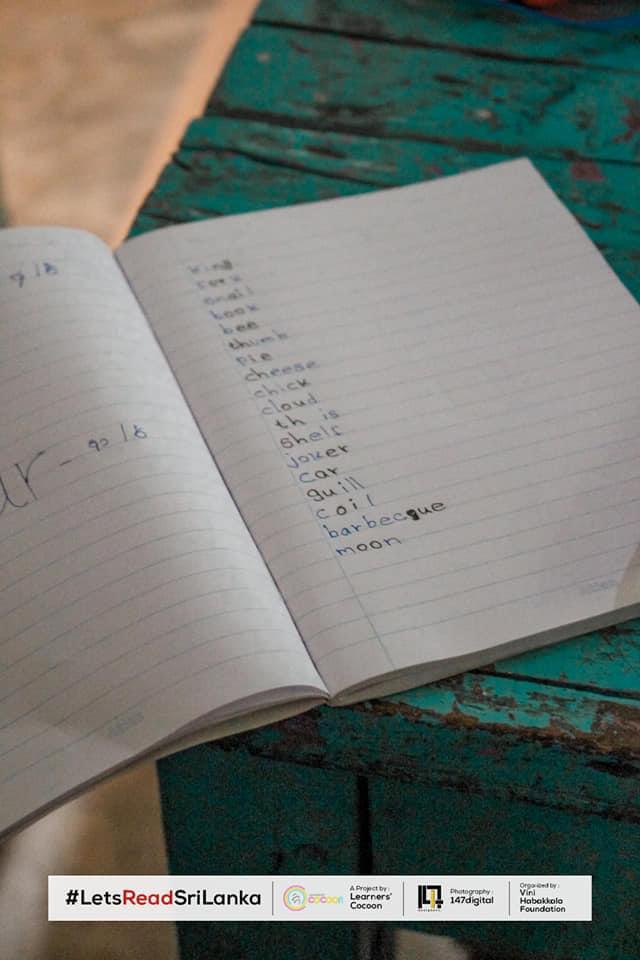 king
fork
snail
book
bee
thumb
pie
cheese
chick
cloud
th is
shelf
joker
car
guill
coil
barbecque
moon
#LetsReadSriLanka
cocoon
A Project by :
Learners'
Cocoon
Photography :
147digital
Organized by :
Vini
Habakkala
Foundation